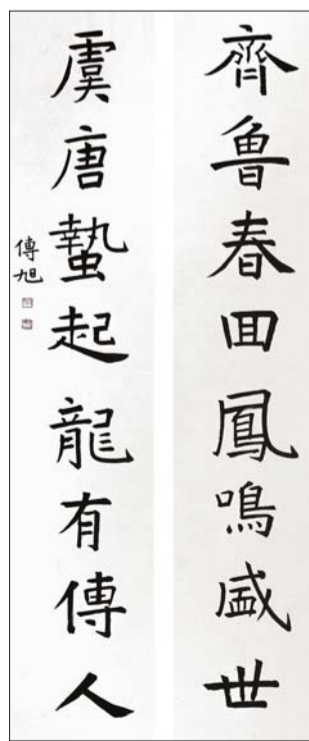 齊魯春回鳳鳴盛世
虞唐蟄起龍有傳人
傳旭